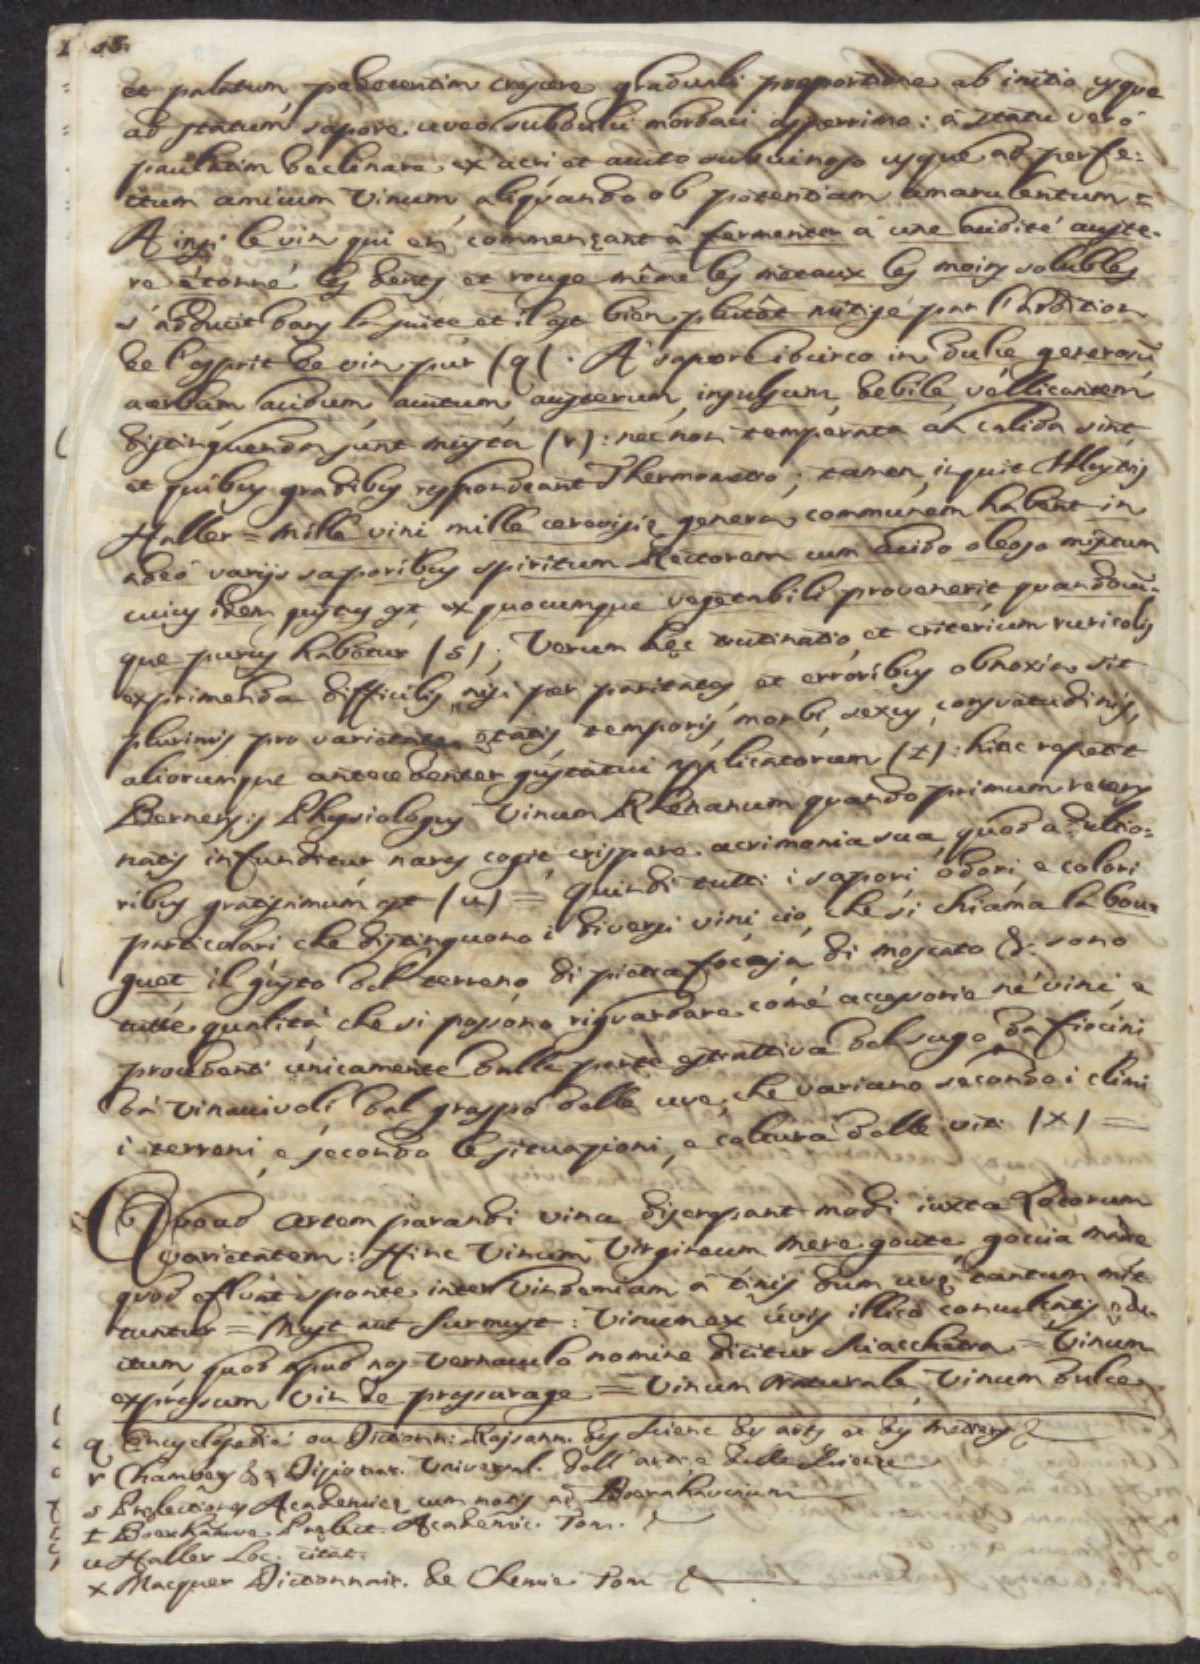 et palatum pedetentim crescere graduali proportione ab initio usque
ad statum sapore uveo subdulci mordaci asperrimo: à statu verò
paullatim declinare ex acri et acuto usque ad perfe=
ctum amicum Vinum, aliquando ob potentiam amarulentum =
Ainsi le vin qui en commençant à fermenter à une acidité auste-
re étonne les dents et rouge même les métaux les moins solubles
s'adoucit dans la suite et il est bien plutôt mitigé par l'addition
de l'esprit de vin pur (q(. A' sapore idcirco in dulce generosū
acerbum, acidum, acutum, austerum, insulsum, debile, vellicantem
distinguenda sunt musta (r): nec non temperata an calida sint,
et quibus gradibus respondeant Thermometro; tamen, inquit Illustris
Haller = Mille vini mille cerevisię genera, communem habent in
adeò variis saporibus spiritum Rectorem cum acido oleoso mixtum
cuius idem gustus est, ex quocumque vegetabili provenerit quandocū-
que purus habetur (s); Verum hęc trutinatio, et criterium ruricolis
exprimenda difficilis, nisi per paritates, et erroribus obnoxia sit
plurimis pro varietate ętatis, temporis, morbi, sexus, consuetudinis,
aliorumque antecedenter gustatui applicatorum (t): hinc repetit
Bernensis Physiologus Vinum Rhenanum quando primum recens
natis infunditur, nares cogit crispare acrimonia sua, quod adultio=
ribus gratissimum est (u) = Quindi tutti i sapori, odori, e colori
particolari che distinguono i diversi vini, ciò, che si chiama la bou=
quet il gusto del terreno, di pietra focaja, di moscato &. sono
tutte qualità che si possono riguardare come accessorie ne' vini, e
procedenti unicamente dalla parte estrattiva del sugo, da fiocini
da Vinacivoli, dal graspo delle uve, che variano secondo i climi
i terreni, e secondo le situazioni, e coltura delle viti (x) =
Quoad Artem parandi vina discrepant modi iuxta Locorum
varietatem: Hinc Vinum Virgineum mere goute, goccia madre
quod effluit sponte inter vindemiam à tinis dum uvę tantum mit
tuntur = Must aut Surmust: Vinum ex uvis illicò
quod apud nos vernaculo nomine dicitur Sciacchetra = Vinum
expressum Vin de pressurage = Vinum Naturale, Vinum dulce
q Encyclopedie ou Dictionn: Raisonn. des Scienc des arts et des Metiers &
r Chambers &. Dizionar. Universal. dell' arti e delle Scienze
s Pręlectiones Academicę cum notis ad Boerahavium
t Boerhaave Pręlect. Academic. Tom. &
u Haller Loc. citat.
x Macquer Dictionnair. de Chemie Tom &